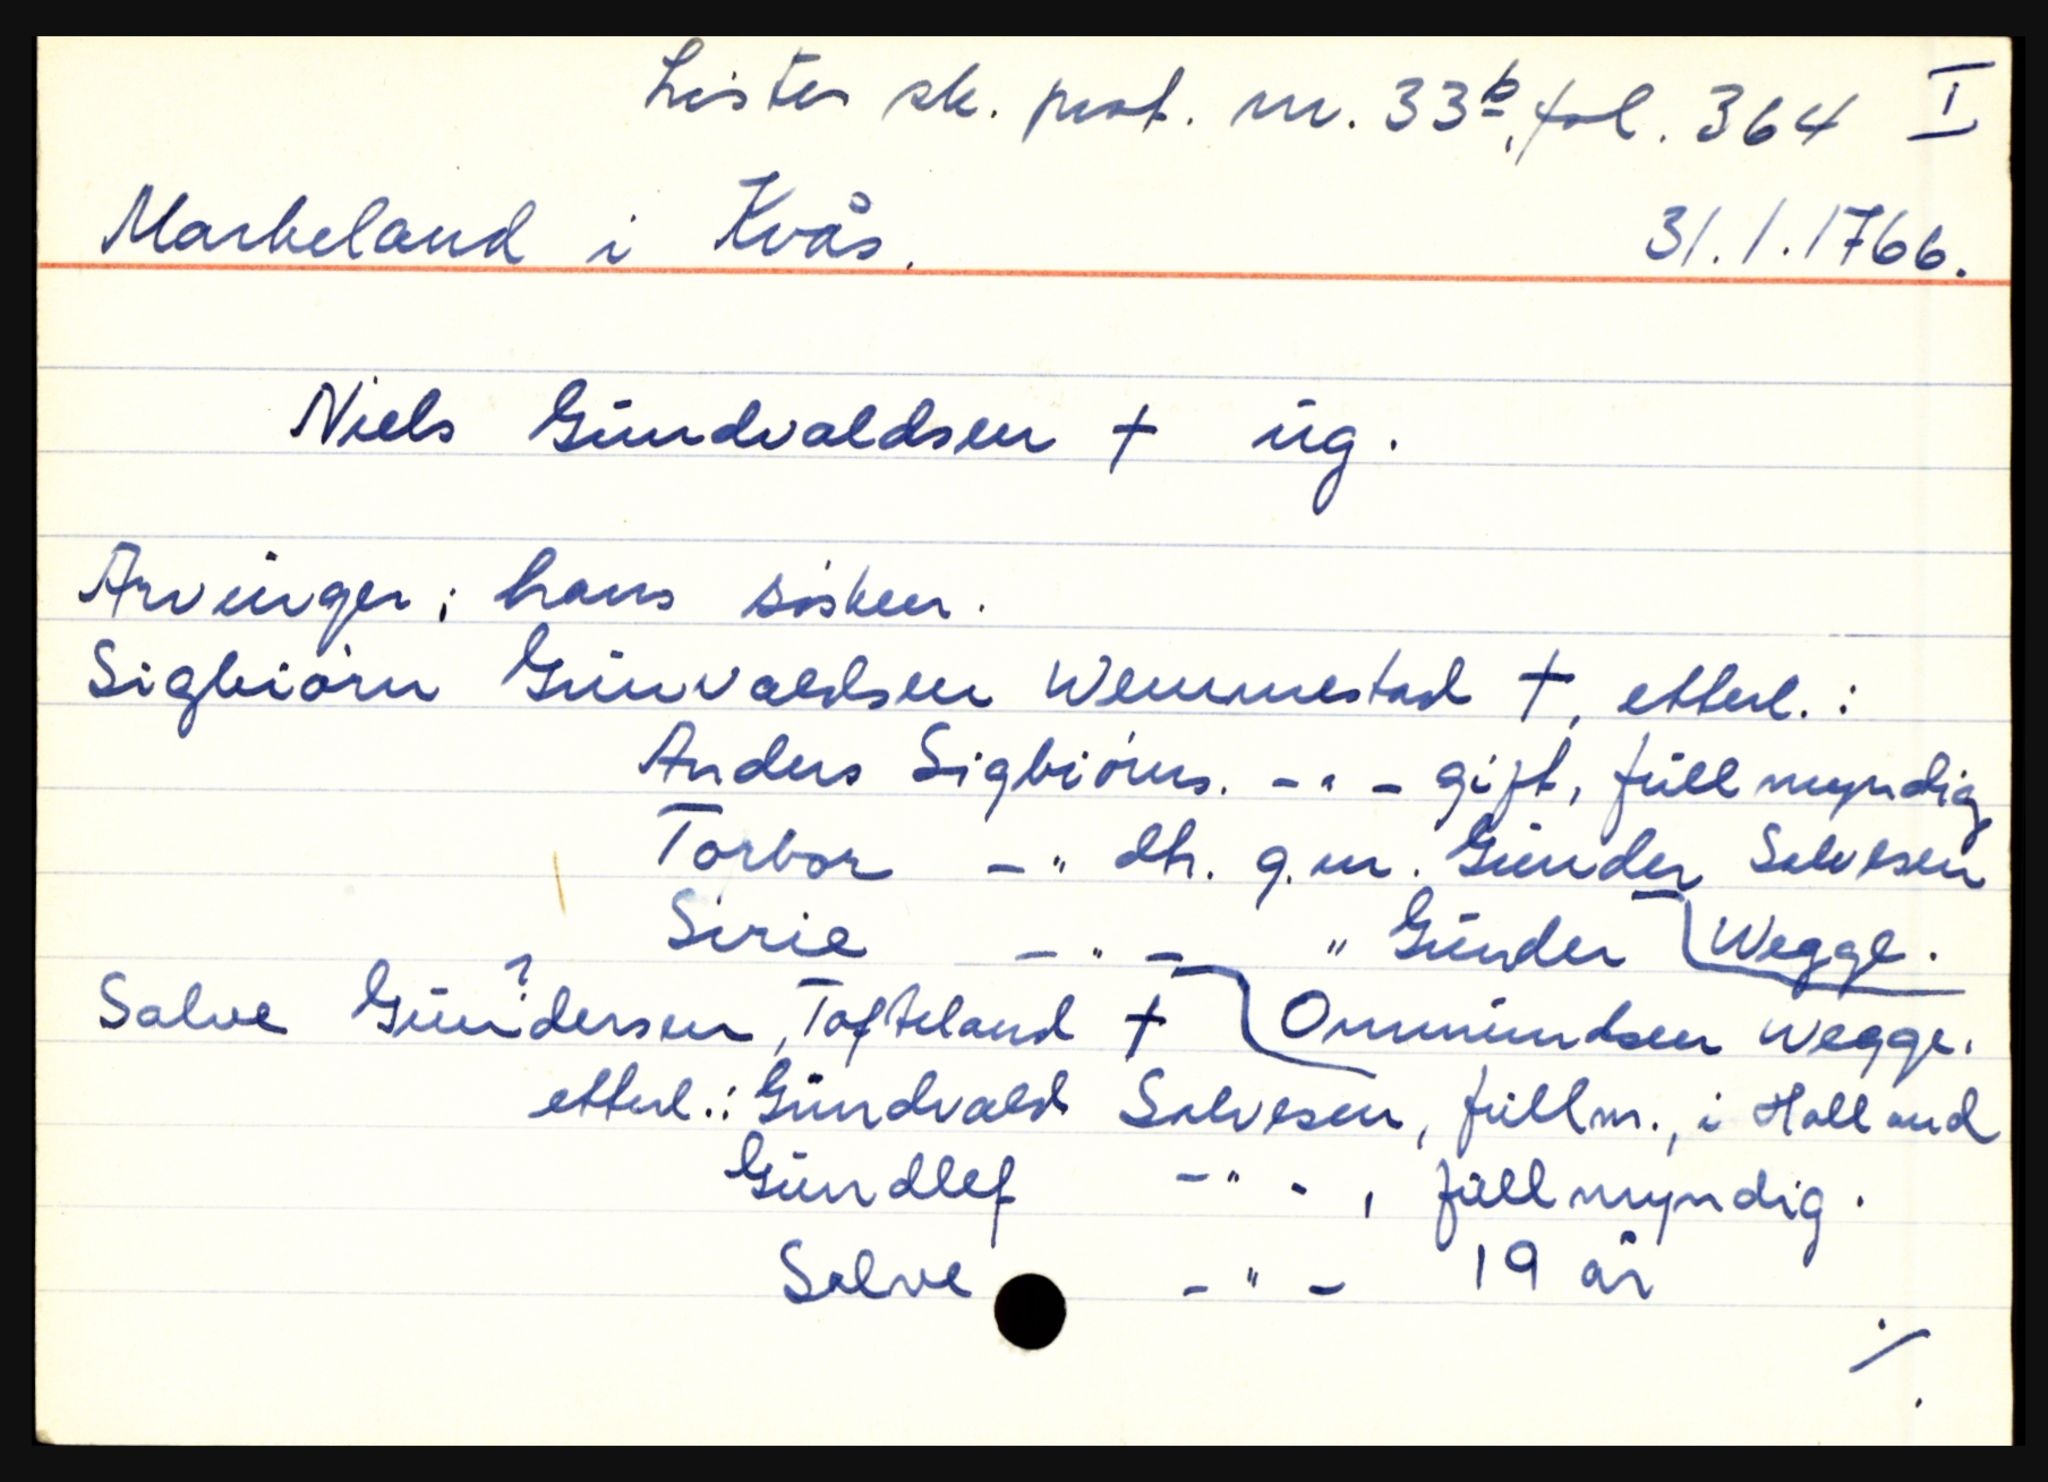 Lister sk. prot. nr. 33b, fol. 364 I
Markeland i Kvås. 31.1.1766.
Niels Gündvaldsen † üg.
Arvinger: hans søsken.
Sigbiørn Günvaldsen Wemmestad †, etterl.:
Anders Sigbiørns. - " - gift, füllmyndig
Torbor - " dtr. g.m. Günder Salvesen
Sirie - " - " Günder Wegge.
Salve Gün?dersen, Tofteland † Ommündsen Wegge.
etterl.: Gündvald Salvesen, füllm., i Holland
Gündlef - " -, füllmyndig.
Salve - " - 19 år
./.